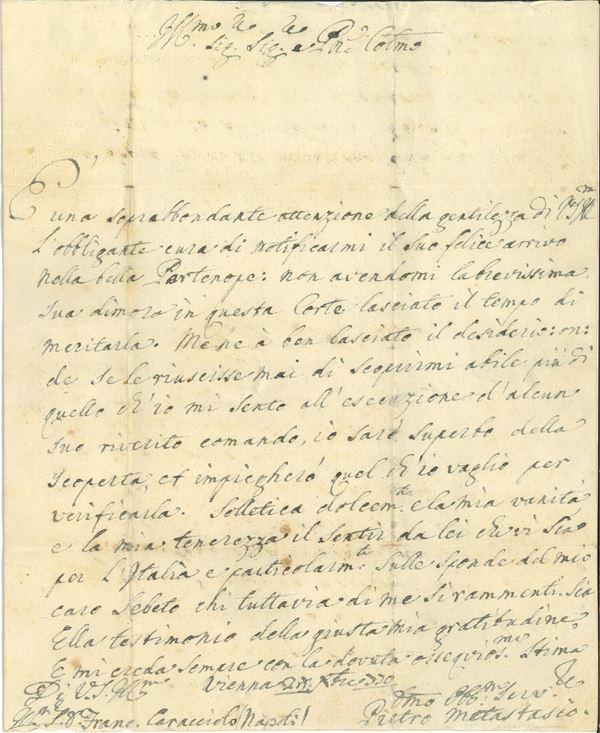 Ill.mo
Sig. Sig. e Pne. Colmo
E' una soprabbondante attenzione della gentilezza di V.S.Ill.m
l'obbligante cura di notificarmi il suo felice arrivo
nella bella Partenope: non avendomi la brevissima
sua dimora in questa Corte lasciato il tempo di
meritarla. Me ne à ben lasciato il desiderio: on:
de se le riuscisse mai di scoprirmi abile più di
quello ch'io mi sento all'esecuzione d'alcun
suo riverito comando, io sarò superbo della
scoperta et impiegherò quel ch'io vaglio per
verificarla. Solletica dolcem.te e la mia vanità
e la mia tenerezza il sentir da lei che vi sia
per l'Italia e particolarm.te sulle sponde del mio
caro Sebeto chi tuttavia di me si rammenti. Sia
Ella testimonio della giusta mia gratitudine,
E mi creda sempre con la dovuta ossequios.ma stima
Di V.S.Ill.m Vienna
Franc. Caracciolo (Napoli) Pietro Metastasio.